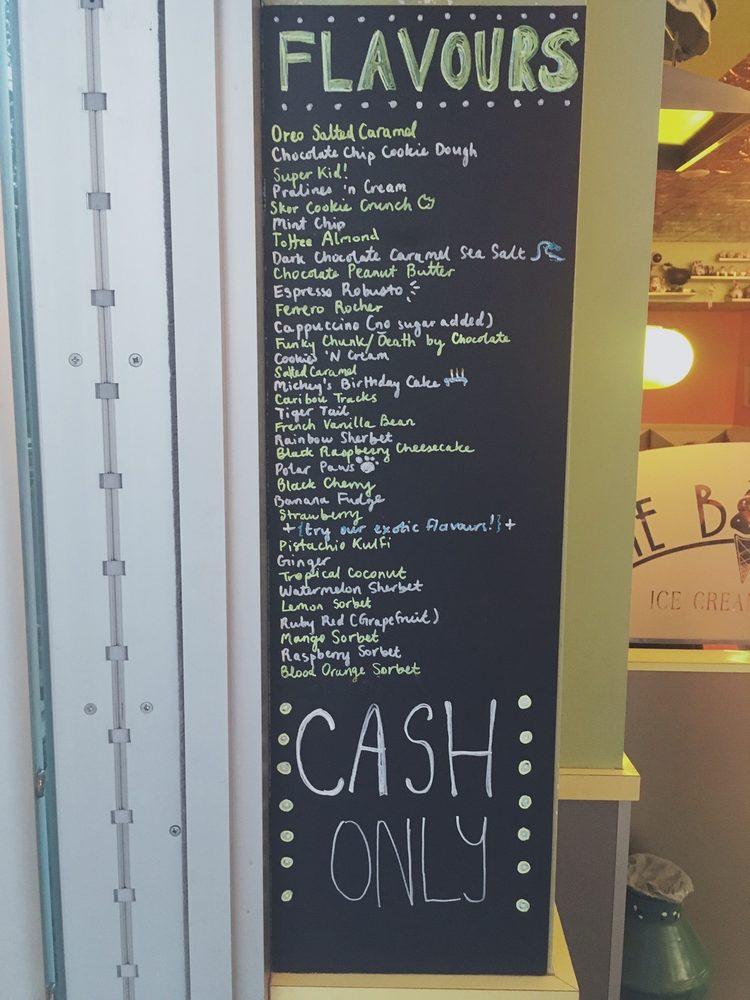 FLAVOURS
Oreo Salted Caramel
Chocolate Chip Cookie Dough
Super Kid!
Pralines 'n Cream
Skor Cookie Crunch
Mint Chip
Toffee Almond
Dark Chocolate Caramel Sea Salt
Chocolate Peanut Butter
Espresso Robusto
Ferrero Rocher
Cappuccino (no sugar added)
Funky Chunk/Death by Chocolate
Cookies 'N Cream
Salted Caramel
Mickey's Birthday Cake
Caribou Tracks
Tiger Tail
French Vanilla Bean
Rainbow Sherbet
Black Raspberry Cheesecake
Polar Paws
Black Cherry
Banana Fudge
Strawberry
+{try our exotic flavours!}+
Pistachio Kulfi
Ginger
Tropical Coconut
Watermelon Sherbet
Lemon Sorbet
Ruby Red (Grapefruit)
Mango Sorbet
Raspberry Sorbet
Blood Orange Sorbet
CASH
ONLY
ICE CREA